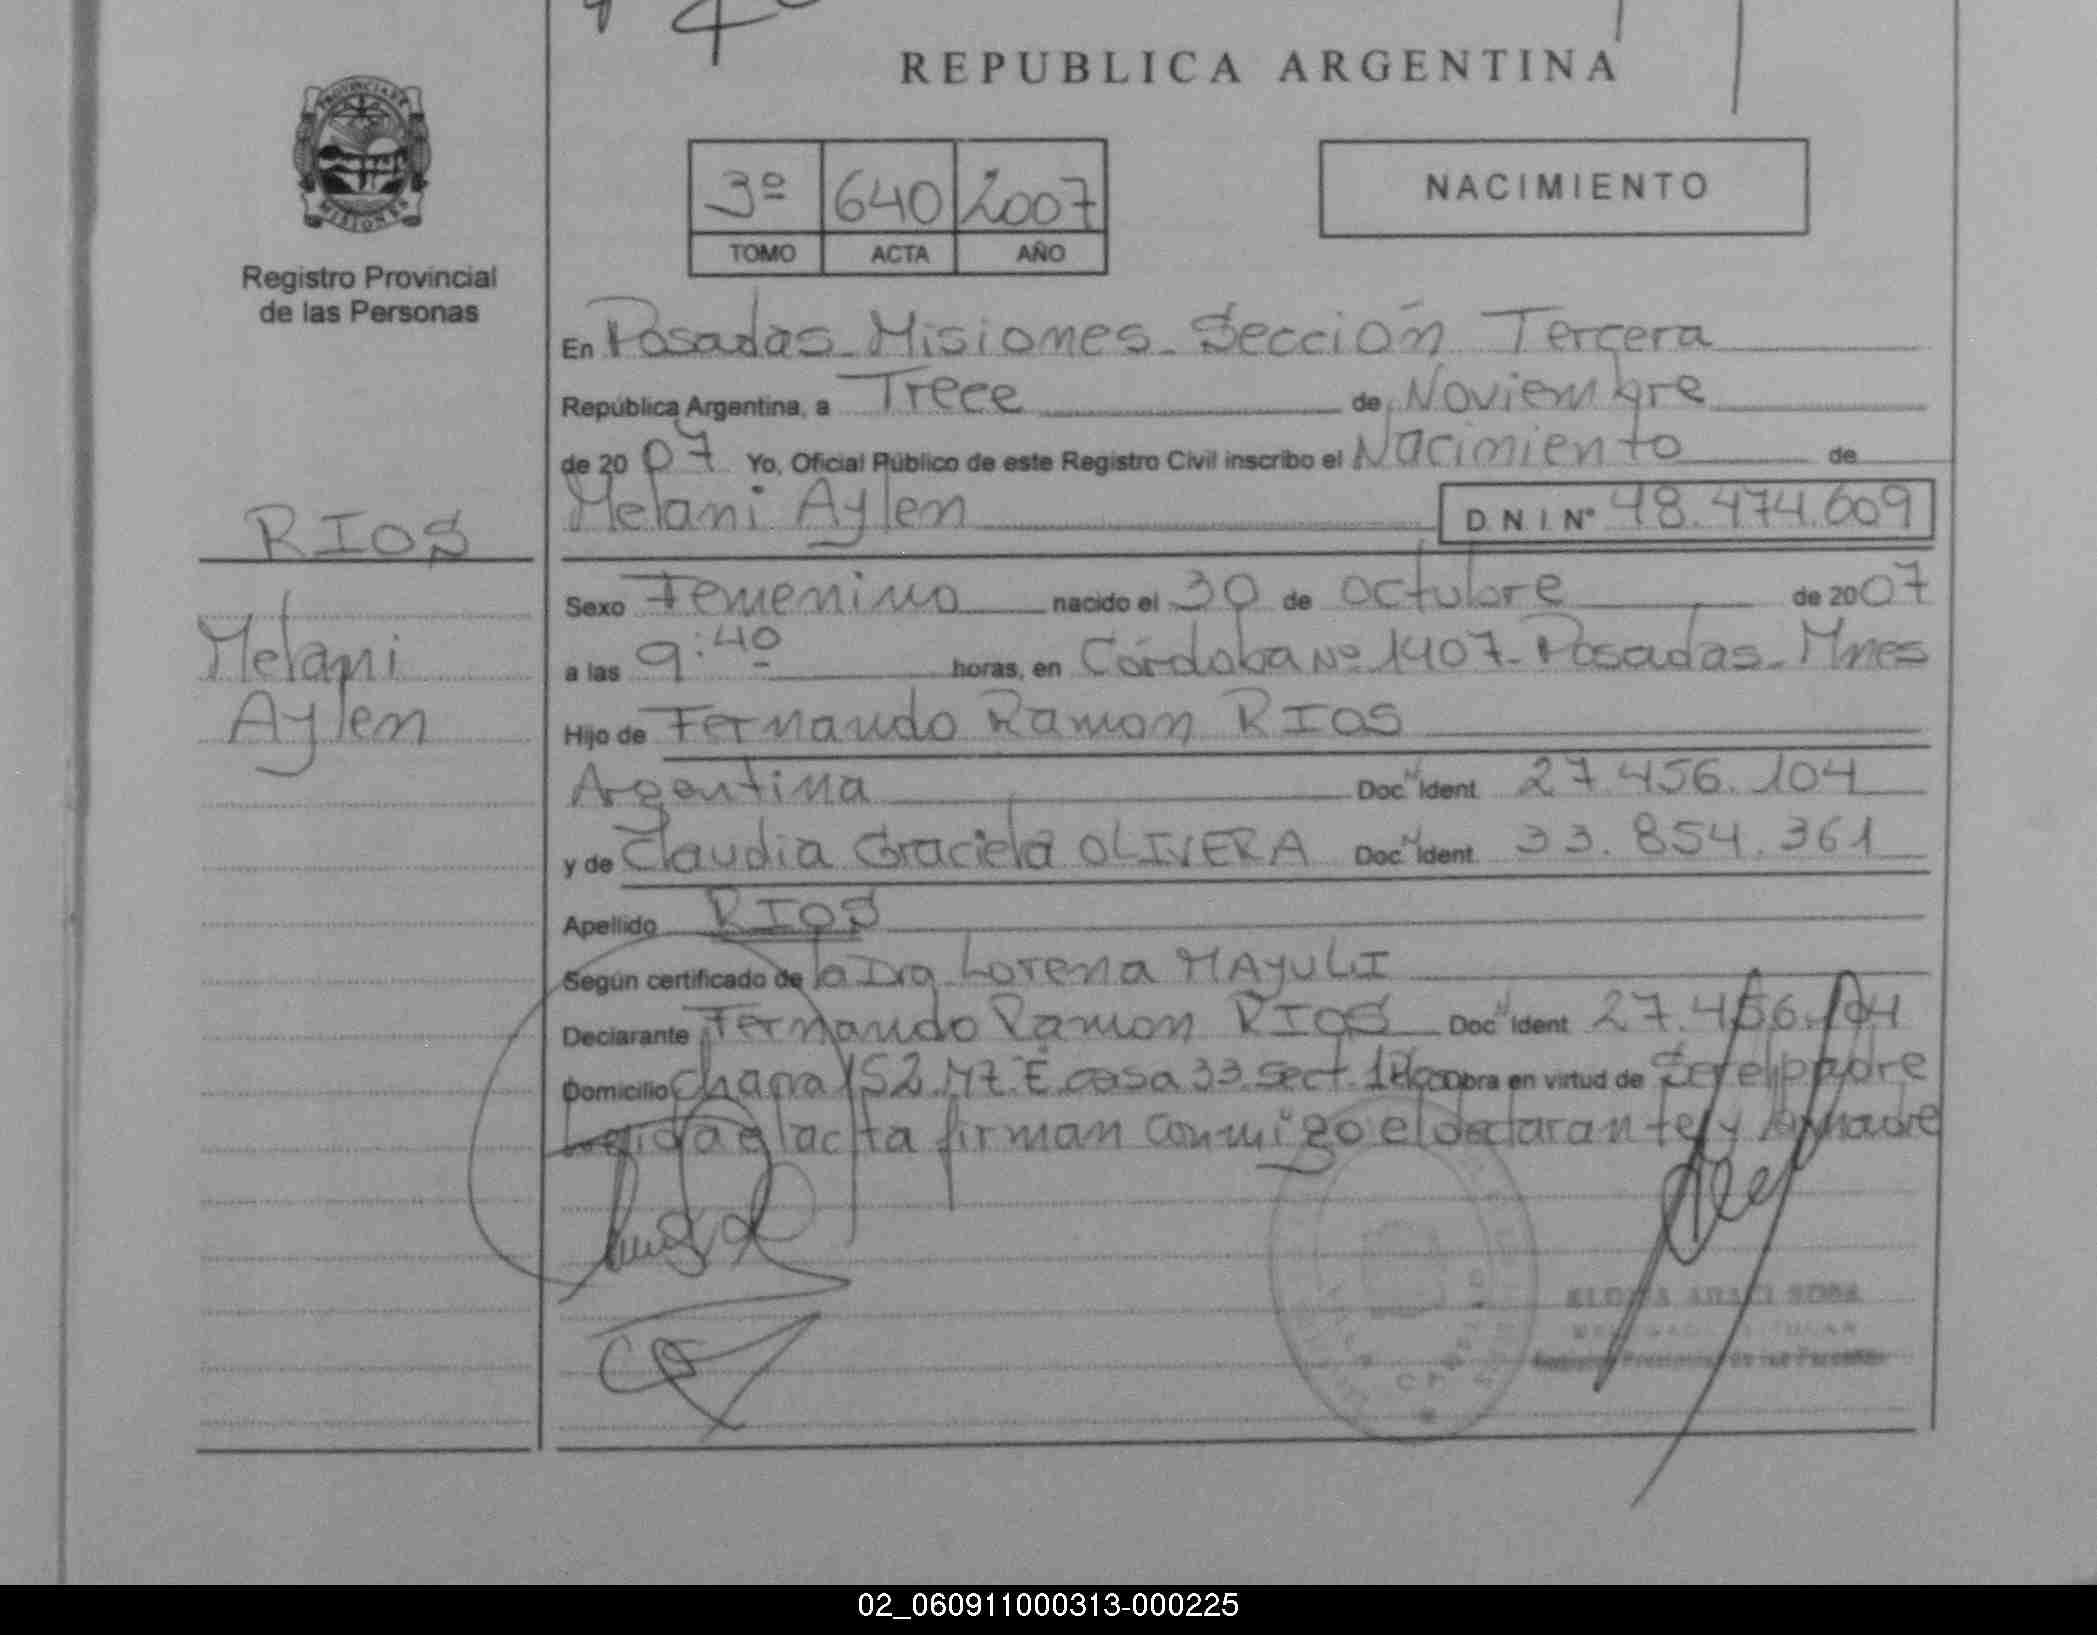 REPUBLICA ARGENTINA
PROVINCIA DE
MISIONES
Registro Provincial
de las Personas
3º 640 2007
TOMO ACTA AÑO
NACIMIENTO
En Posadas - Misiones - Sección Tercera
República Argentina, a Trece de Noviembre
de 2007 Yo, Oficial Público de este Registro Civil inscribo el Nacimiento de
Melani Aylen D.N.I. Nº 48.474.609
RIOS
Melani
Aylen
Sexo Femenino nacido el 30 de octubre de 2007
a las 9:40 horas, en Córdoba Nº 1407 - Posadas - Mnes
Hijo de Fernando Ramon RIOS
Argentina Doc. Ident. 27.456.104
y de Claudia Graciela OLIVERA Doc. Ident. 33.854.361
Apellido RIOS
Según certificado de la Dra Lorena MAYULI
Declarante Fernando Ramon RIOS Doc. Ident. 27.456.104
Domicilio chacra 152 Mz. E casa 33 sect. 1 obra en virtud de Ser el padre
Leida el acta firman conmigo el declarante y la madre
02_060911000313-000225